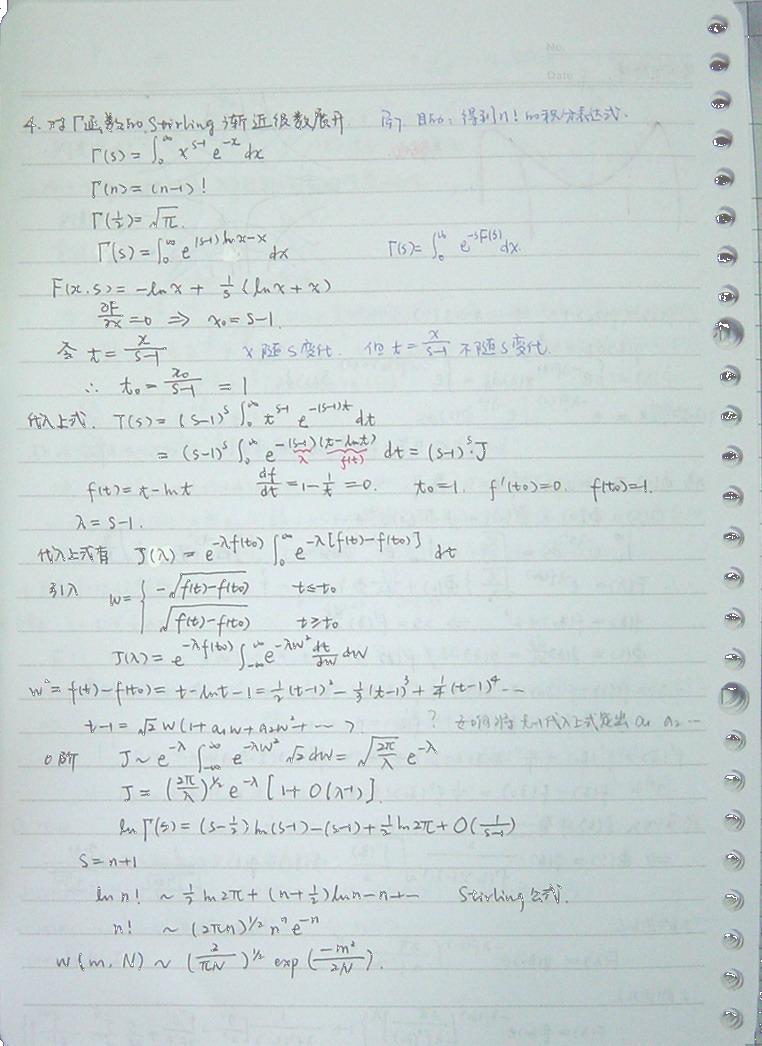 No.
Date
4. 对Γ函数的Stirling渐近级数展开 目的：得到n!的积分表达式.
Γ(s) = ∫₀^∞ x^(s-1) e^(-x) dx
Γ(n) = (n-1)!
Γ(½) = √π.
Γ(s) = ∫₀^∞ e^((s-1)lnx-x) dx Γ(s) = ∫₀^∞ e^(-sF(s)) dx.
F(x,s) = -lnx + 1/s (lnx + x)
∂F/∂x = 0 ⇒ x₀ = s-1.
令 t = x/(s-1) x随s变化. 但 t = x/(s-1) 不随s变化.
∴ t₀ = x₀/(s-1) = 1
代入上式. Γ(s) = (s-1)^s ∫₀^∞ t^(s-1) e^(-(s-1)t) dt
= (s-1)^s ∫₀^∞ e^(-(s-1)(t-lnt)) dt = (s-1)^s · J
λ f(t)
f(t) = t-lnt df/dt = 1-1/t = 0. t₀=1. f'(t₀)=0. f(t₀)=1.
λ = s-1.
代入上式有 J(λ) = e^(-λf(t₀)) ∫₀^∞ e^(-λ[f(t)-f(t₀)]) dt
引入 w = { -√(f(t)-f(t₀)) t≤t₀
√(f(t)-f(t₀)) t≥t₀
J(λ) = e^(-λf(t₀)) ∫_(-∞)^∞ e^(-λw²) dt/dw dw
w² = f(t)-f(t₀) = t-lnt-1 = ½(t-1)² - ⅓(t-1)³ + ¼(t-1)⁴ ...
t-1 = √2 w(1+a₁w+a₂w²+ ... ) ? 如何将t-1代入上式定出 a₁ a₂ ...
0阶 J ~ e^(-λ) ∫_(-∞)^∞ e^(-λw²) √2 dw = √(2π/λ) e^(-λ)
J = (2π/λ)^(1/2) e^(-λ) [1+O(λ-1)].
lnΓ(s) = (s-½)ln(s-1)-(s-1)+½ln2π+O(1/(s-1))
s = n+1
ln n! ~ ½ln2π+(n+½)lnn-n+... Stirling公式.
n! ~ (2πn)^(1/2) nⁿ e^(-n)
w(m,N) ~ (2/πN)^(1/2) exp(-m²/2N).